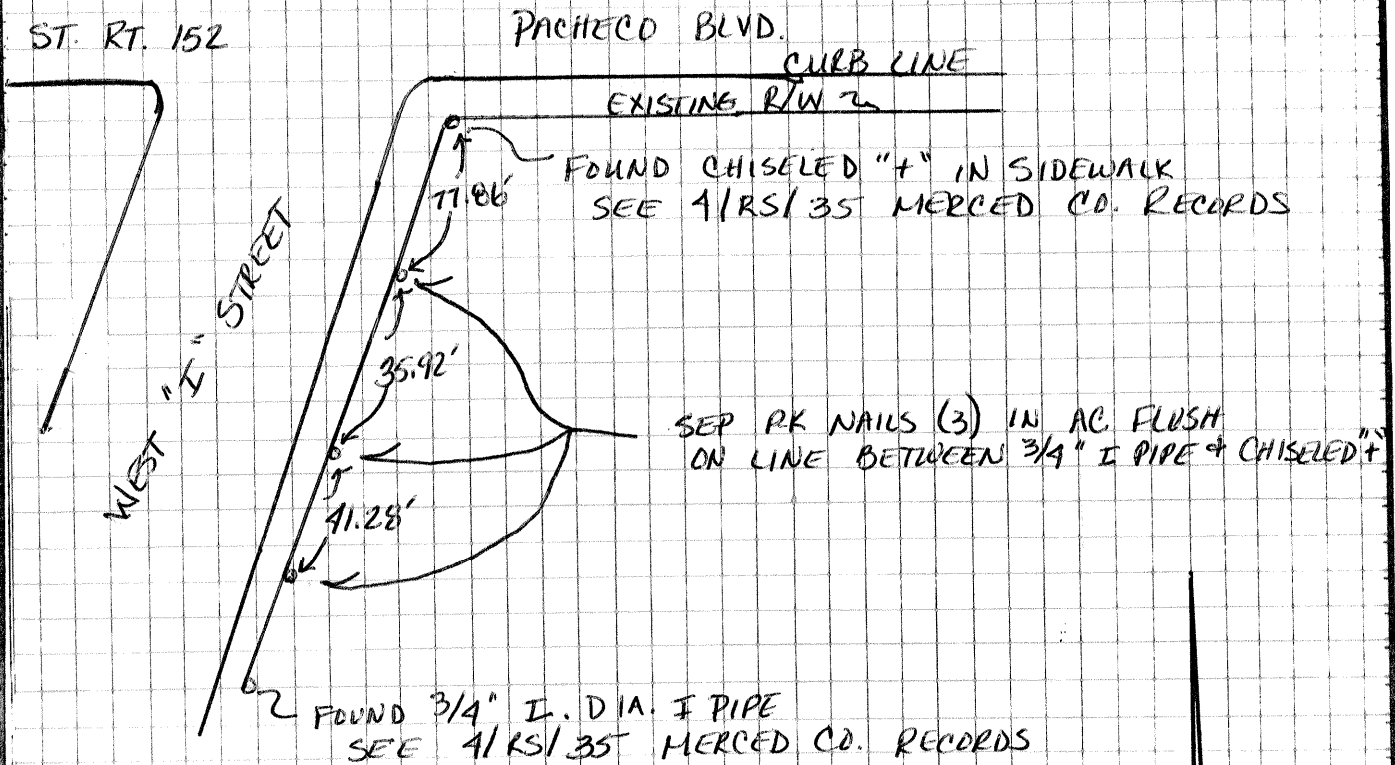 ST. RT. 152
PACHECO BLVD.
CURB LINE
EXISTING R/W
FOUND CHISELED "+" IN SIDEWALK
SEE 4/RS/35 MERCED CO. RECORDS
77.86'
WEST "I" STREET
35.92'
SEP PK NAILS (3) IN AC FLUSH
ON LINE BETWEEN 3/4" I PIPE & CHISELED "+"
41.28'
FOUND 3/4" I. DIA. I PIPE
SEE 4/RS/35 MERCED CO. RECORDS